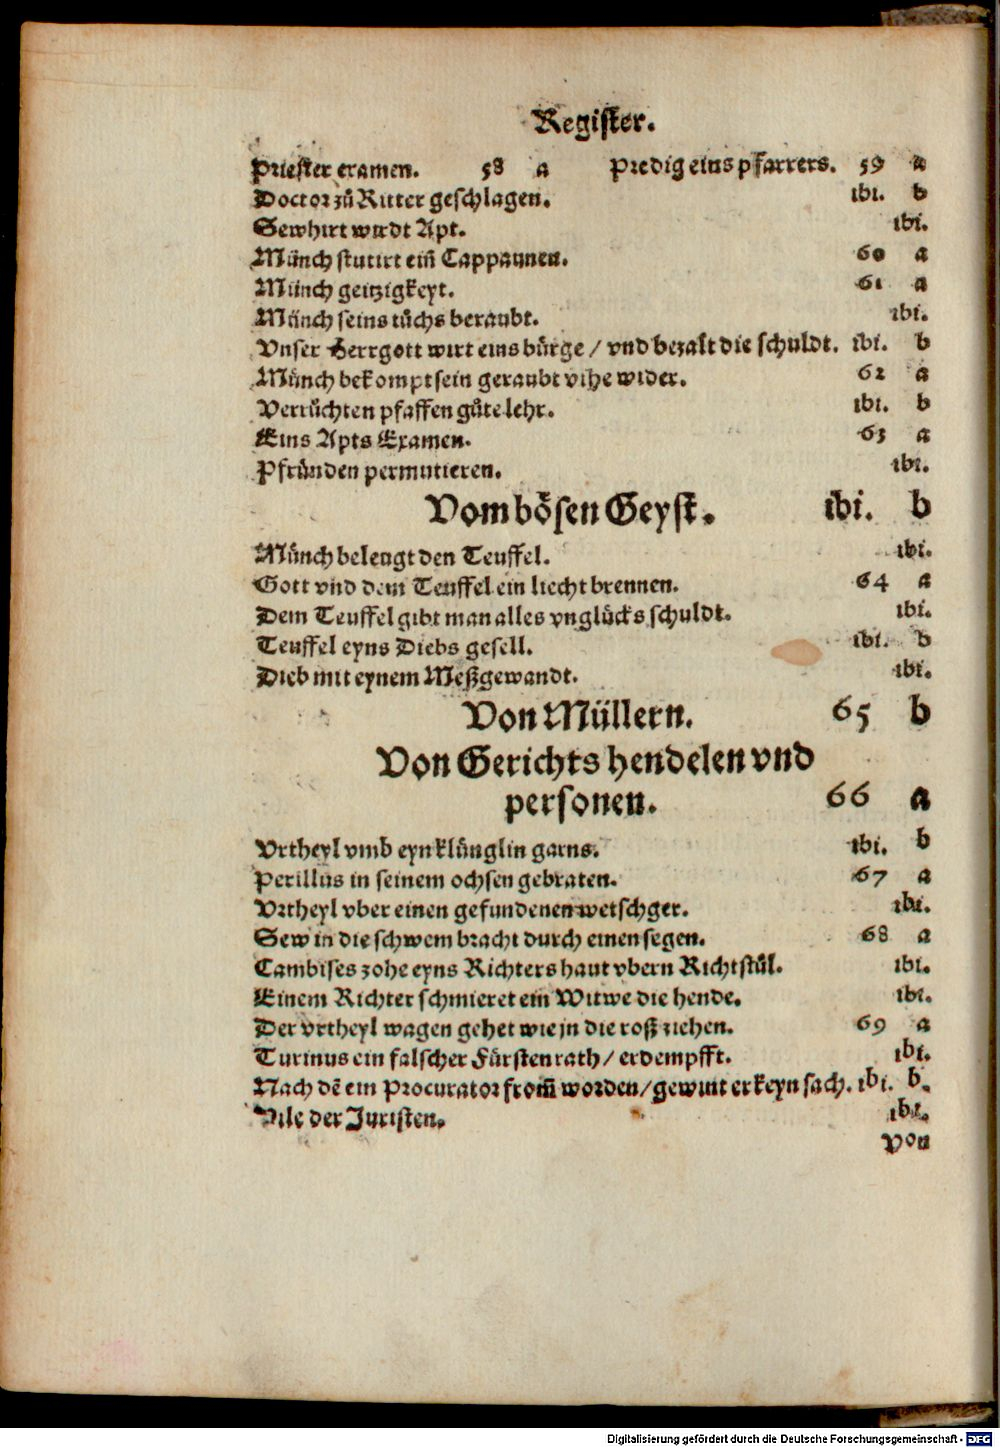 Register.
Priester examen. 58 a Predig eins pfarrers. 59 a
Doctor zů Ritter geschlagen. ibi. b
Sewhirt wirdt Apt. ibi.
Münch stutirt eim̃ Cappaunen. 60 a
Münch geitzigkeyt. 61 a
Münch seins tůchs beraubt. ibi.
Vnser Herrgott wirt eins bürge / vnd bezalt die schuldt. ibi. b
Münch bekompt sein geraubt vihe wider. 62 a
Verrůchten pfaffen gůte lehr. ibi. b
Eins Apts Examen. 63 a
Pfründen permutieren. ibi.
Vom bösen Geyst. ibi. b
Münch beleugt den Teuffel. ibi.
Gott vnd dem Teuffel ein liecht brennen. 64 a
Dem Teuffel gibt man alles vnglücks schuldt. ibi.
Teuffel eyns Diebs gesell. ibi. b
Dieb mit eynem Meßgewandt. ibi.
Von Müllern. 65 b
Von Gerichts hendelen vnd
personen. 66 a
Vrtheyl vmb eyn klünglin garns. ibi. b
Perillus in seinem ochsen gebraten. 67 a
Vrtheyl vber einen gefundenen wetschger. ibi.
Sew in die schwem bracht durch einen segen. 68 a
Cambises zohe eyns Richters haut vbern Richtstůl. ibi.
Einem Richter schmieret ein Witwe die hende. ibi.
Der vrtheyl wagen gehet wie jn die roß ziehen. 69 a
Turinus ein falscher Fürsten rath / erdempfft. ibi.
Nach dē ein Procurator from̃ worden / gewint er keyn sach. ibi. b.
Vile der Juristen. ibi.
Von
Digitalisierung gefördert durch die Deutsche Forschungsgemeinschaft - DFG